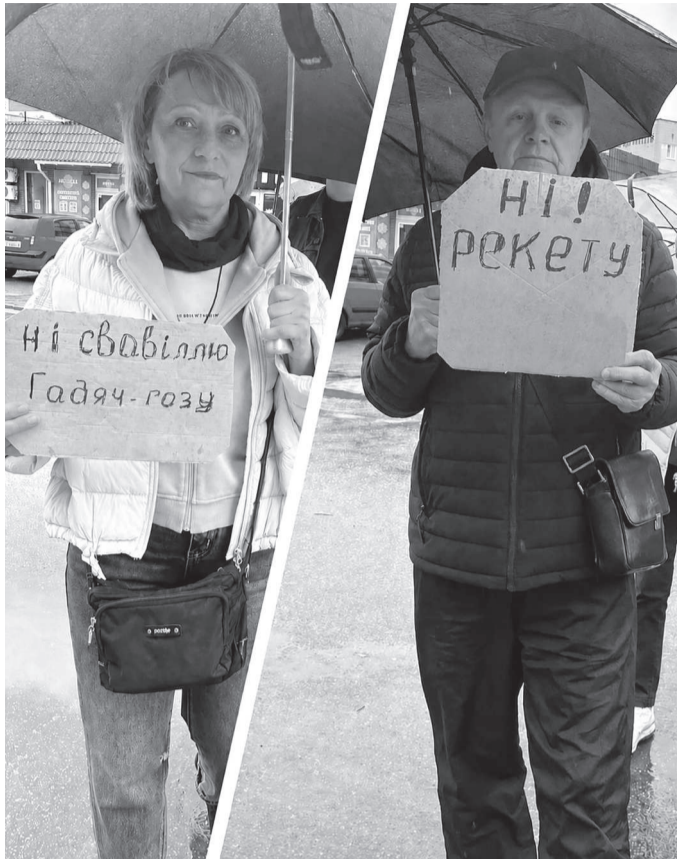 Ні свавіллю
Гадяч-газу
НІ!
РЕКЕТУ